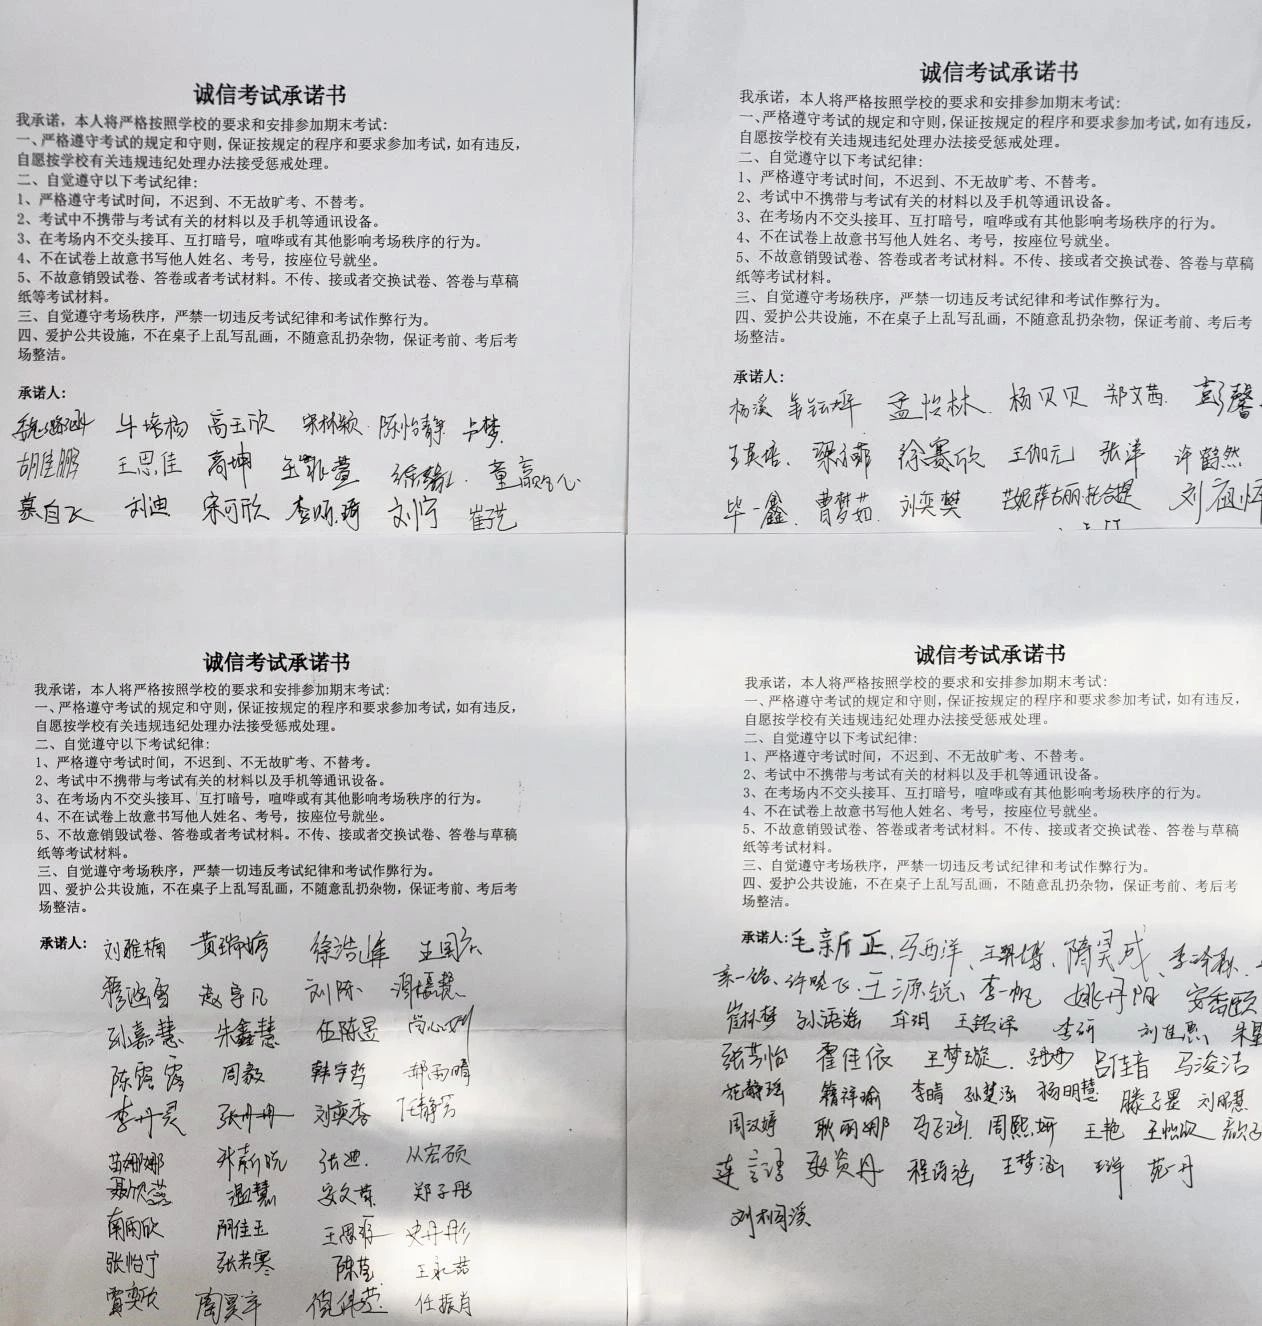 诚信考试承诺书
我承诺，本人将严格按照学校的要求和安排参加期末考试：
一、严格遵守考试的规定和守则，保证按规定的程序和要求参加考试，如有违反，
自愿按学校有关违规违纪处理办法接受惩戒处理。
二、自觉遵守以下考试纪律：
1、严格遵守考试时间，不迟到、不无故旷考、不替考。
2、考试中不携带与考试有关的材料以及手机等通讯设备。
3、在考场内不交头接耳、互打暗号，喧哗或有其他影响考场秩序的行为。
4、不在试卷上故意书写他人姓名、考号，按座位号就坐。
5、不故意销毁试卷、答卷或者考试材料。不传、接或者交换试卷、答卷与草稿
纸等考试材料。
三、自觉遵守考场秩序，严禁一切违反考试纪律和考试作弊行为。
四、爱护公共设施，不在桌子上乱写乱画，不随意乱扔杂物，保证考前、考后考
场整洁。
承诺人：
牛培杨 高玉欣 宋林颖 陈怡静 卢梦
胡佳鹏 王思佳 高坤 王凯萱 董赢心
慕自飞 刘迪 宋可欣 刘宁 崔艺
诚信考试承诺书
我承诺，本人将严格按照学校的要求和安排参加期末考试：
一、严格遵守考试的规定和守则，保证按规定的程序和要求参加考试，如有违反，
自愿按学校有关违规违纪处理办法接受惩戒处理。
二、自觉遵守以下考试纪律：
1、严格遵守考试时间，不迟到、不无故旷考、不替考。
2、考试中不携带与考试有关的材料以及手机等通讯设备。
3、在考场内不交头接耳、互打暗号，喧哗或有其他影响考场秩序的行为。
4、不在试卷上故意书写他人姓名、考号，按座位号就坐。
5、不故意销毁试卷、答卷或者考试材料。不传、接或者交换试卷、答卷与草稿
纸等考试材料。
三、自觉遵守考场秩序，严禁一切违反考试纪律和考试作弊行为。
四、爱护公共设施，不在桌子上乱写乱画，不随意乱扔杂物，保证考前、考后考
场整洁。
承诺人：
杨溪 孟怡林 杨贝贝 郑文茜 彭馨
王英培 徐赛欣 王伽元 张洋 许鹤然
毕一鑫 曹梦茹 刘奕樊 刘祖怀
诚信考试承诺书
我承诺，本人将严格按照学校的要求和安排参加期末考试：
一、严格遵守考试的规定和守则，保证按规定的程序和要求参加考试，如有违反，
自愿按学校有关违规违纪处理办法接受惩戒处理。
二、自觉遵守以下考试纪律：
1、严格遵守考试时间，不迟到、不无故旷考、不替考。
2、考试中不携带与考试有关的材料以及手机等通讯设备。
3、在考场内不交头接耳、互打暗号，喧哗或有其他影响考场秩序的行为。
4、不在试卷上故意书写他人姓名、考号，按座位号就坐。
5、不故意销毁试卷、答卷或者考试材料。不传、接或者交换试卷、答卷与草稿
纸等考试材料。
三、自觉遵守考场秩序，严禁一切违反考试纪律和考试作弊行为。
四、爱护公共设施，不在桌子上乱写乱画，不随意乱扔杂物，保证考前、考后考
场整洁。
承诺人： 刘雅楠 黄瑞婷
赵宇凡 刘陈
孙嘉慧 朱鑫慧 伍陈昱
陈露露 周毅 韩宇哲 郝雨晴
李丹灵 张丹丹 刘奕秀 任静雪
苗娜娜 张迪 从宏硕
聂欣蕊 温慧 安文荣 郑子彤
南雨欣 阴佳玉 史丹彤
张怡宁 张若寒 陈莹 王永喆
贾奕欣 陶昊宇 任振肖
诚信考试承诺书
我承诺，本人将严格按照学校的要求和安排参加期末考试：
一、严格遵守考试的规定和守则，保证按规定的程序和要求参加考试，如有违反，
自愿按学校有关违规违纪处理办法接受惩戒处理。
二、自觉遵守以下考试纪律：
1、严格遵守考试时间，不迟到、不无故旷考、不替考。
2、考试中不携带与考试有关的材料以及手机等通讯设备。
3、在考场内不交头接耳、互打暗号，喧哗或有其他影响考场秩序的行为。
4、不在试卷上故意书写他人姓名、考号，按座位号就坐。
5、不故意销毁试卷、答卷或者考试材料。不传、接或者交换试卷、答卷与草稿
纸等考试材料。
三、自觉遵守考场秩序，严禁一切违反考试纪律和考试作弊行为。
四、爱护公共设施，不在桌子上乱写乱画，不随意乱扔杂物，保证考前、考后考
场整洁。
承诺人：毛新正、马西洋、隋昊成、
许晓飞、王源锐、李一帆 姚丹阳 安香颐
崔林梦 孙语涵 牟玥 王铭泽 李研 刘佳惠
张芸怡 霍佳依 王梦璇 吕佳音 马浚洁
施静瑶 籍祥瑜 李晴 孙楚涵 杨明慧 滕子昱 刘明慧
周汉婷 耿丽娜 周熙妍 王艳 王怡欣
连言语 程语涵 王梦涵 苑丹
刘桐溪